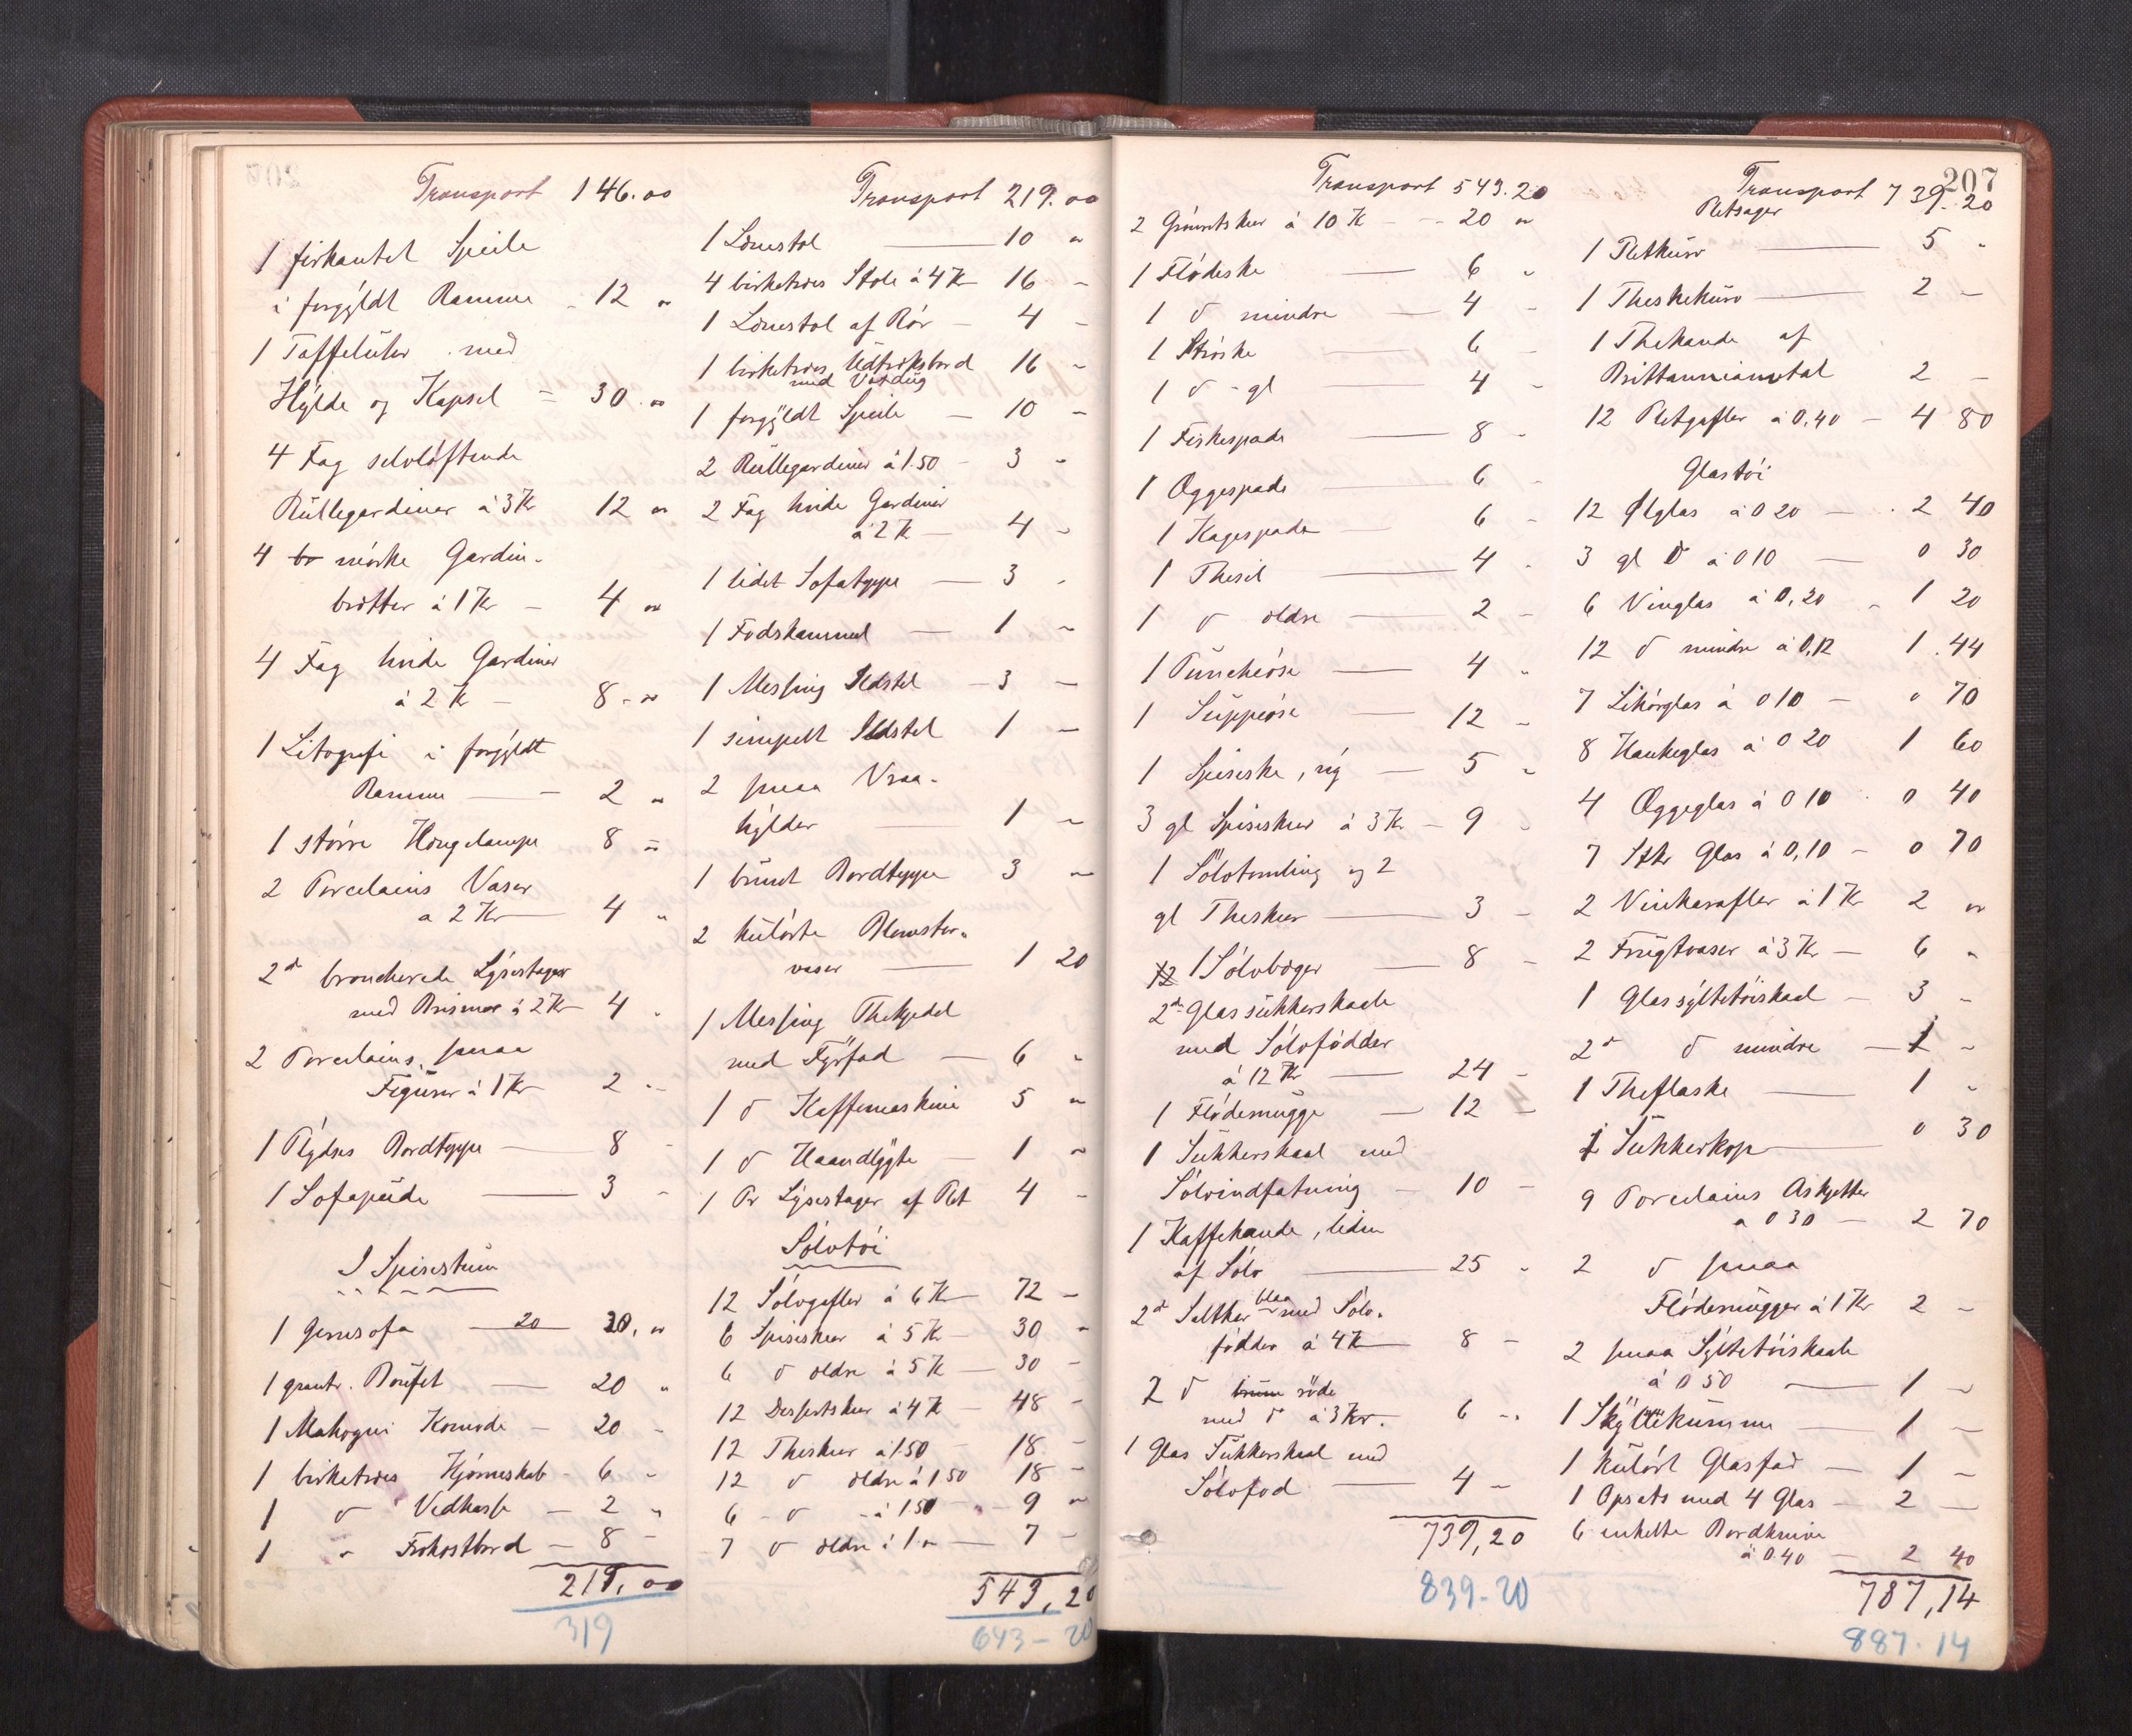 Transport 146.00
1 firkantet Speile
i forgyldt Ramme - 12 "
1 Taffeluhr med
Hylde og Kapsel = 30 "
4 Fag selvløftende
Rullegardiner à 3 Kr 12 "
4 mørke Gardin-
brætter à 1 Kr - 4 "
4 Fag hvide Gardiner
à 2 Kr - 8 - "
1 Litografi i forgyldt
Ramme - 2 "
1 større Hængelampe 8 "
2 Porcelains Vaser
a 2 Kr - 4 "
2 d broncherede Lysestager
med Prismer à 2 Kr 4 "
2 Porcelains smaa
Figurer à 1 Kr 2 -
1 Plydses Bordtæppe - 8 -
1 Sofapude - 3 -
I Spisestuen
1 Gjæmesofa 20 20, "
1 grantr. Boufet - 20 "
1 Mahogni Komode - 20 -
1 birketræes Hjørneskab - 6 -
1 d Vedkasse - 2 "
1 " Frokostbord - 8 -
219, 00
319
Transport 219.00
1 Lænestol - 10 "
4 birketræes Stole à 4 Kr 16 -
1 Lænestol af Rør - 4 -
1 birketræes Udtræksbord 16 -
med Voxdug
1 forgyldt Speile - 10 -
2 Rullegardiner à 1.50 - 3 -
2 Fag hvide Gardiner
à 2 K - 4 -
1 lidet Sofatæppe - 3 -
1 Fodskammel - 1 -
1 Messing Ildstel - 3 -
1 simpelt Ildstel 1 -
2 smaa Vraa-
hylder - 1 -
1 brunt Bordtæppe 3 -
2 kulørte Blomster-
vaser - 1 20
1 Messing Thekjedel
med Fyrfad - 6 "
1 d Kaffemaskine 5 "
1 d Haandlygte - 1 "
1 Pr Lysestager af Plet 4 -
Sølvtøi
12 Sølvgafler à 6 Kr 72 -
6 Spiseskeer à 5 Kr - 30 -
6 d ældre à 5 K - 30 -
12 Dessertskeer à 4 Kr - 48 -
12 Theskeer à 1.50 - 18 -
12 d ældre à 1 50 18 -
6 - d - à 1 50 - 9 "
7 d ældre à 1 " - 7 -
543, 20
643 - 20
207
Transport 543.20
2 Grøntskeer à 10 Kr - 20 "
1 Flødeske - 6 "
1 d mindre - 4 -
1 Strøske - 6 -
1 d - gl - 4 -
1 Fiskespade - 8 -
1 Æggespade - 6 -
1 Kagespade - 6 -
1 Thesil - 4 -
1 d ældre - 2 -
1 Puncheøse - 4 "
1 Suppeøse - 12 -
1 Spiseske, rig - 5 "
3 gl Spiseskeer à 3 Kr - 9 -
1 Sølvtumling og 2
gl Theskeer - 3 -
1 Sølvbæger - 8 -
2 d Glassukkerskaale
med Sølvfødder
à 12 Kr - 24 -
1 Flødemugge - 12 -
1 Sukkerskaal med
Sølvindfatning - 10 -
1 Kaffekande, liden
af Sølv - 25 -
2 d Saltkar blaa med Sølv-
fødder à 4 Kr 8 -
2 d røde
med d à 3 Kr. 6 -
1 Glas Sukkerskaal med
Sølvfod - 4 -
739, 20
839 - 20
Transport 739.20
Pletsager
1 Pletkurv - 5 "
1 Theskekurv - 2 -
1 Thekande af
Brittanniametal 2 -
12 Pletgafler à 0,40 - 4 80
Glastøi
12 Ølglas à 0 20 - 2 40
3 gl d à 0 10 - 0 30
6 Vinglas à 0,20 - 1 20
12 d mindre à 0,12 1.44
7 Likørglas à 0 10 - 0 70
8 Hankeglas à 0 20 1 60
4 Æggeglas à 0 10 0 40
7 Glas à 0,10 - 0 70
2 Vinkarafler à 1 Kr 2 "
2 Frugtvaser à 3 Kr - 6 "
1 Glassyltetøiskaal - 3 -
2 d d mindre - 1 -
1 Theflaske - 1 -
1 Sukkerkop - 0 30
9 Porcelains Askjetter
a 0 30 - 2 70
2 d smaa
Flødemugger à 1 Kr 2 -
2 smaa Syltetøiskaale
à 0 50 - 1 -
1 Skyllekumme - 1 -
1 kulørt Glasfad - 1 -
1 Opsats med 4 Glas - 2 -
6 enkelte Bordknive
à 0.40 - 2 40
787, 14
887. 14